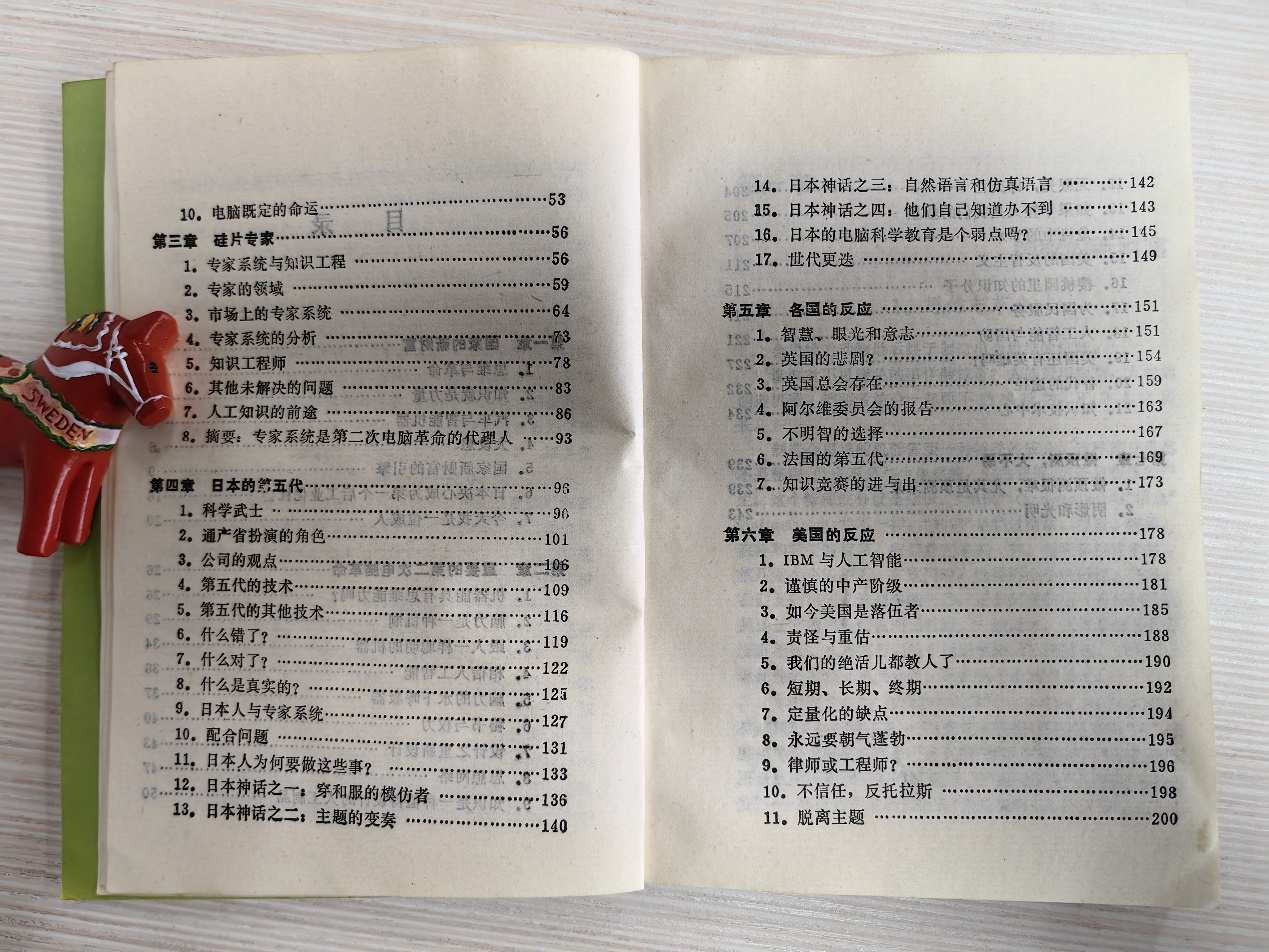 SWEDEN
10。电脑既定的命运…………………………53
第三章 硅片专家…………………………56
1。专家系统与知识工程…………………………56
2。专家的领域…………………………59
3。市场上的专家系统…………………………64
4。专家系统的分析…………………………73
5。知识工程师…………………………78
6。其他未解决的问题…………………………83
7。人工知识的前途…………………………86
8。摘要:专家系统是第二次电脑革命的代理人……93
第四章 日本的第五代…………………………96
1。科学武士…………………………96
2。通产省扮演的角色…………………………101
3。公司的观点…………………………106
4。第五代的技术…………………………109
5。第五代的其他技术…………………………116
6。什么错了?…………………………119
7。什么对了?…………………………122
8。什么是真实的?…………………………125
9。日本人与专家系统…………………………127
10。配合问题…………………………131
11。日本人为何要做这些事?…………………………133
12。日本神话之一:穿和服的模仿者…………………………136
13。日本神话之二:主题的变奏…………………………140
14。日本神话之三:自然语言和仿真语言…………142
15。日本神话之四:他们自己知道办不到…………143
16。日本的电脑科学教育是个弱点吗?…………145
17。世代更迭…………………………149
第五章 各国的反应…………………………151
1。智慧、眼光和意志…………………………151
2。英国的悲剧?…………………………154
3。英国总会存在…………………………159
4。阿尔维委员会的报告…………………………163
5。不明智的选择…………………………167
6。法国的第五代…………………………169
7。知识竞赛的进与出…………………………173
第六章 美国的反应…………………………178
1。IBM与人工智能…………………………178
2。谨慎的中产阶级…………………………181
3。如今美国是落伍者…………………………185
4。责怪与重估…………………………188
5。我们的绝活儿都教人了…………………………190
6。短期、长期、终期…………………………192
7。定量化的缺点…………………………194
8。永远要朝气蓬勃…………………………195
9。律师或工程师?…………………………196
10。不信任,反托拉斯…………………………198
11。脱离主题…………………………200